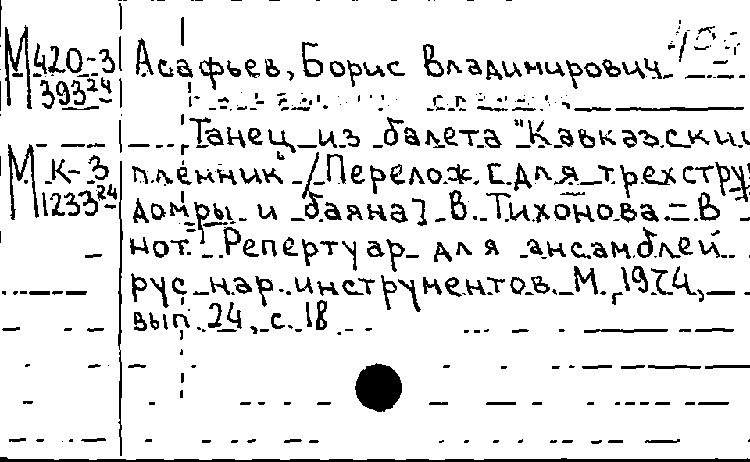 М 420-3
393 24
М К-3
1233 24
Асафьев, Борис Владимирович
Танец из балета "Кавказский
пленник" / Перелож. [для трехстру
домры и баяна] В. Тихонова. – В
нот. Репертуар для ансамблей
рус нар. инструментов. М., 1974,
вып. 24, с. 18